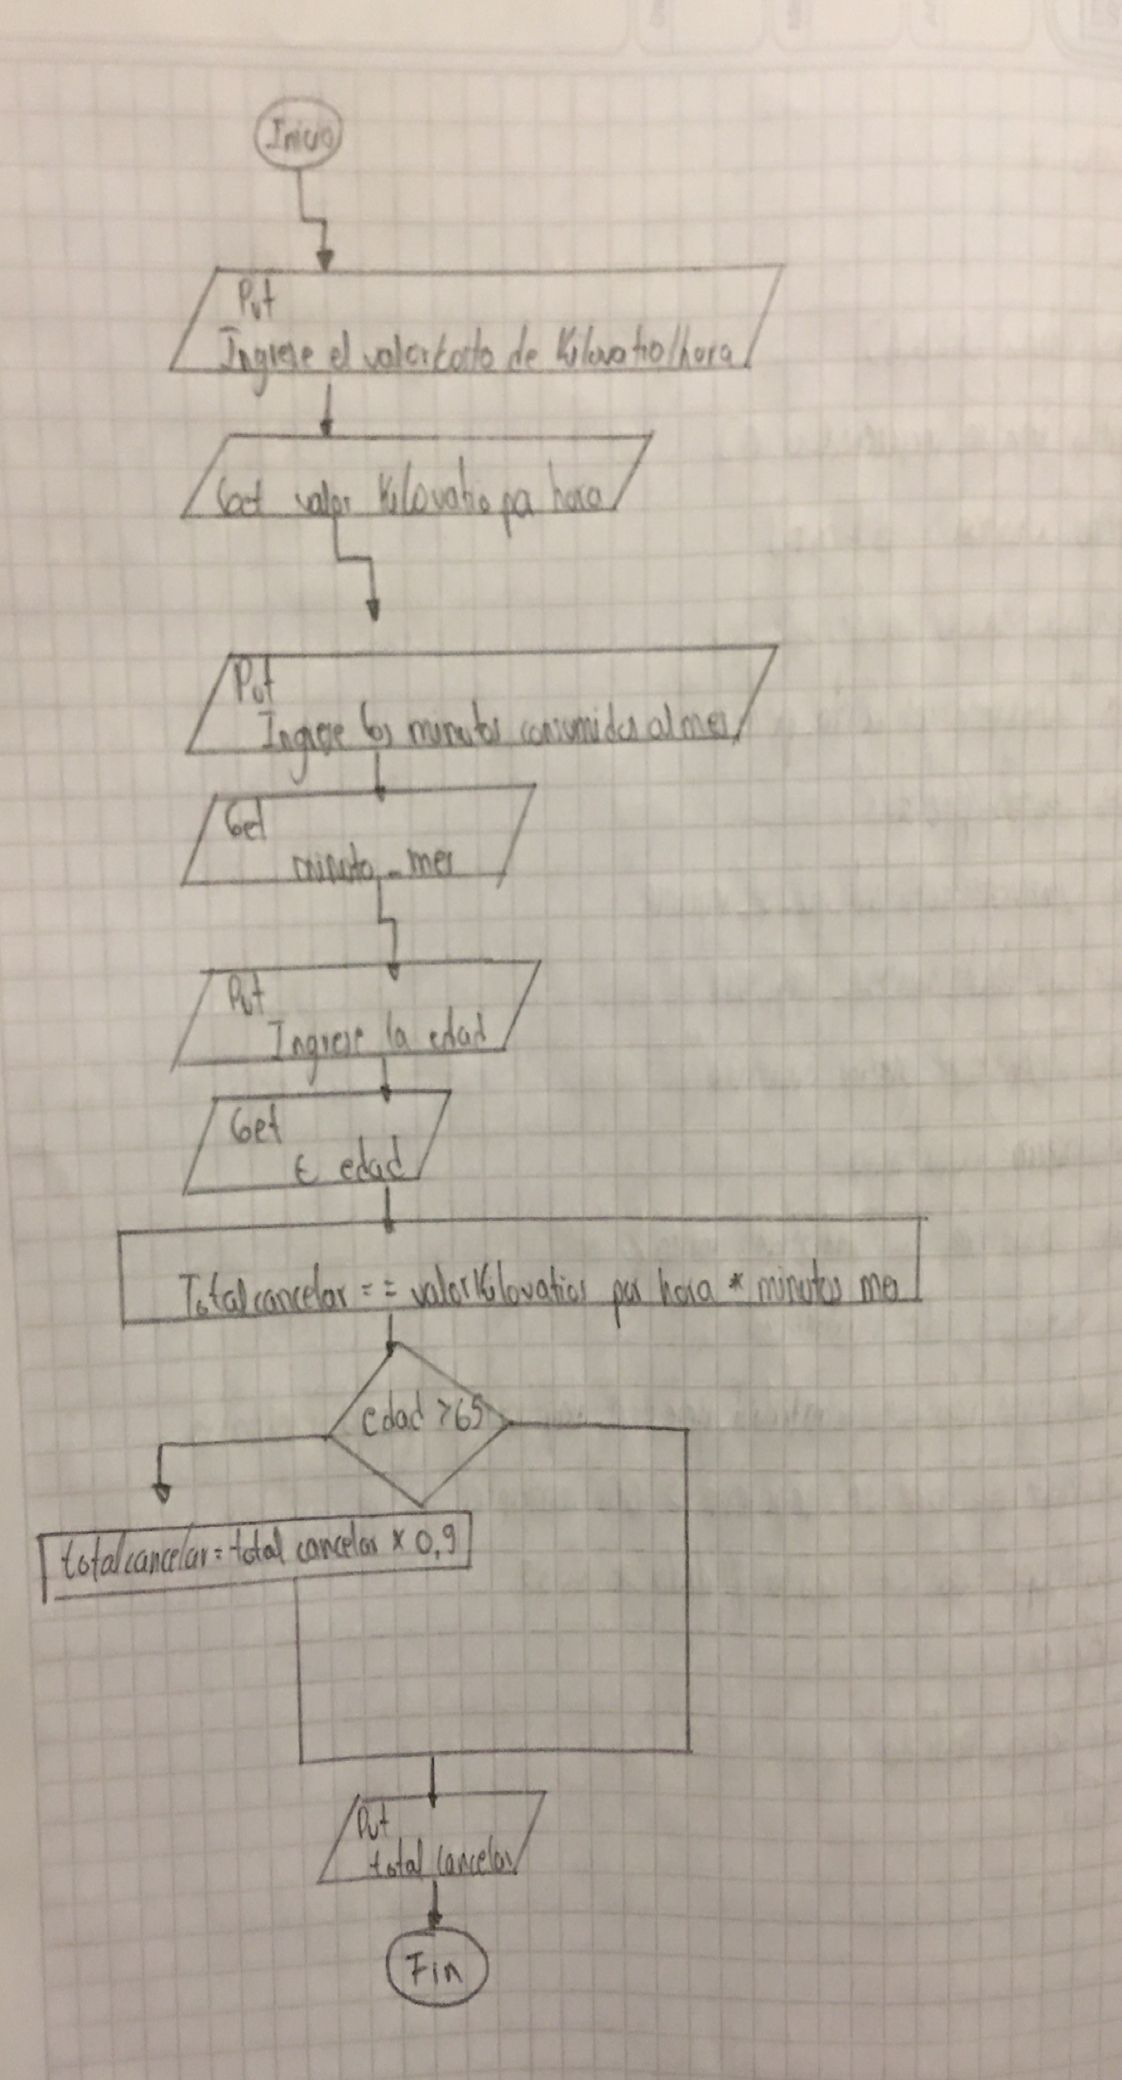 Inicio
Put
Ingrese el valor costo de Kilovatio/hora
Get valor Kilovatio por hora
Put
Ingrese los minutos consumidos al mes
Get
minuto_mes
Put
Ingrese la edad
Get
edad
Totalcancelar == valorKilovatios por hora * minutos mes
edad >65
totalcancelar = total cancelar * 0,9
Put
total cancelar
Fin